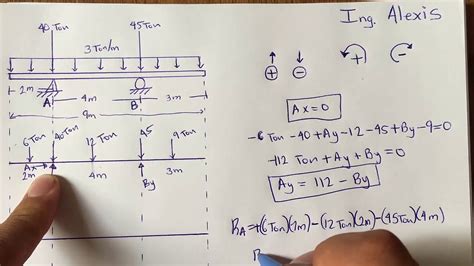 Ing. Alexis
40 Ton 45 Ton
3 Ton/m
2m A 4m B 3m
9m
6 Ton 40 Ton 12 Ton 45 9 Ton
Ax
2m 4m By 3m
+ -
+ -
Ax = 0
-6 Ton -40 + Ay -12 -45 + By -9 = 0
-112 Ton + Ay + By = 0
Ay = 112 - By
+(6 Ton)(1m) - (12 Ton)(2m) - (45 Ton)(4m)